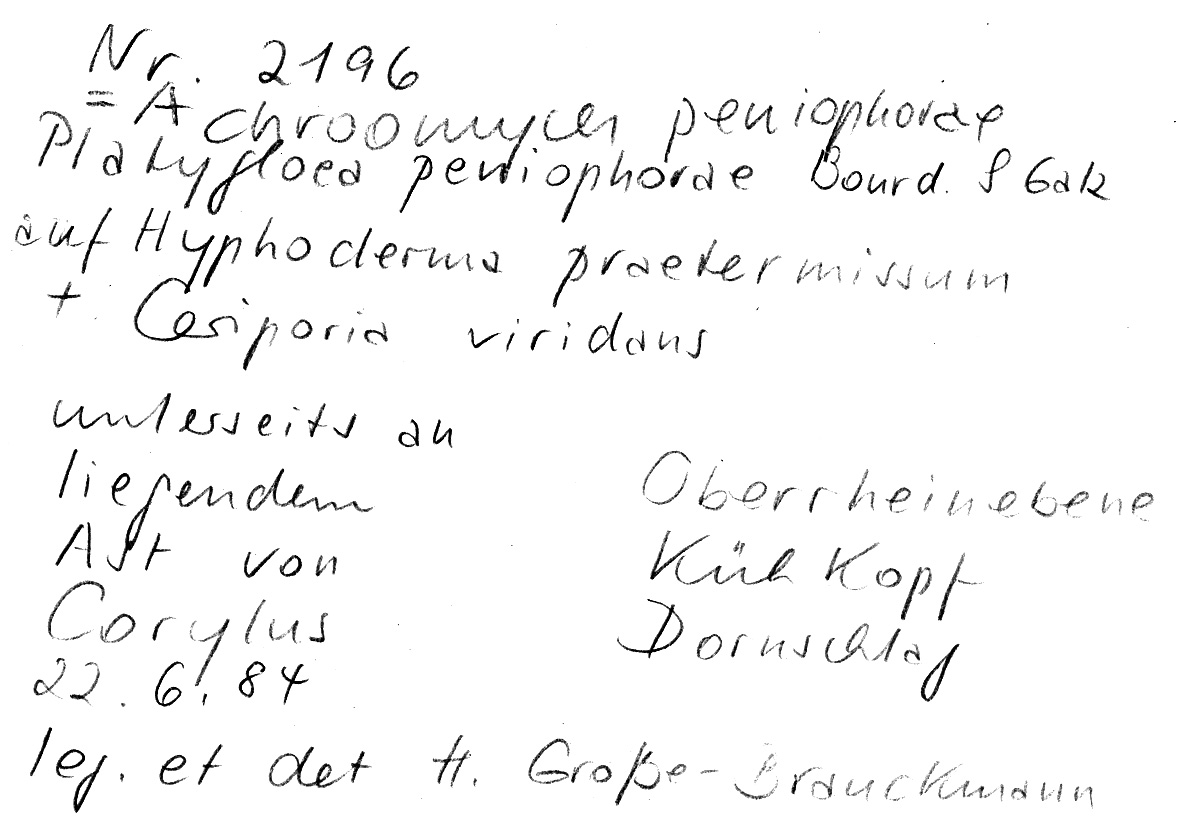 Nr. 2196
= Achroomyces peniophorae
Platygloea peniophorae Bourd. & Galz
auf Hyphoderma praetermissum
+ Ceriporia viridans
unterseits an
liegendem
Ast von
Corylus
22.6.84
Oberrheinebene
Kühkopf
Dornschlag
leg. et det H. Große-Brauckmann